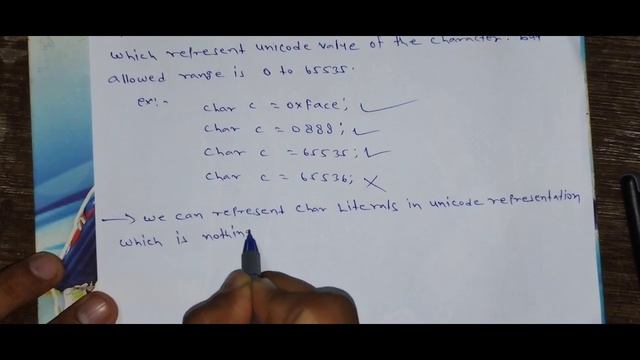 which represent unicode value of the character. but
allowed range is 0 to 65535.
ex:-
char c = 0xface; ✓
char c = 0888; ✓
char c = 65535; ✓
char c = 65536; ✗
→ we can represent char Literals in unicode representation
which is nothin